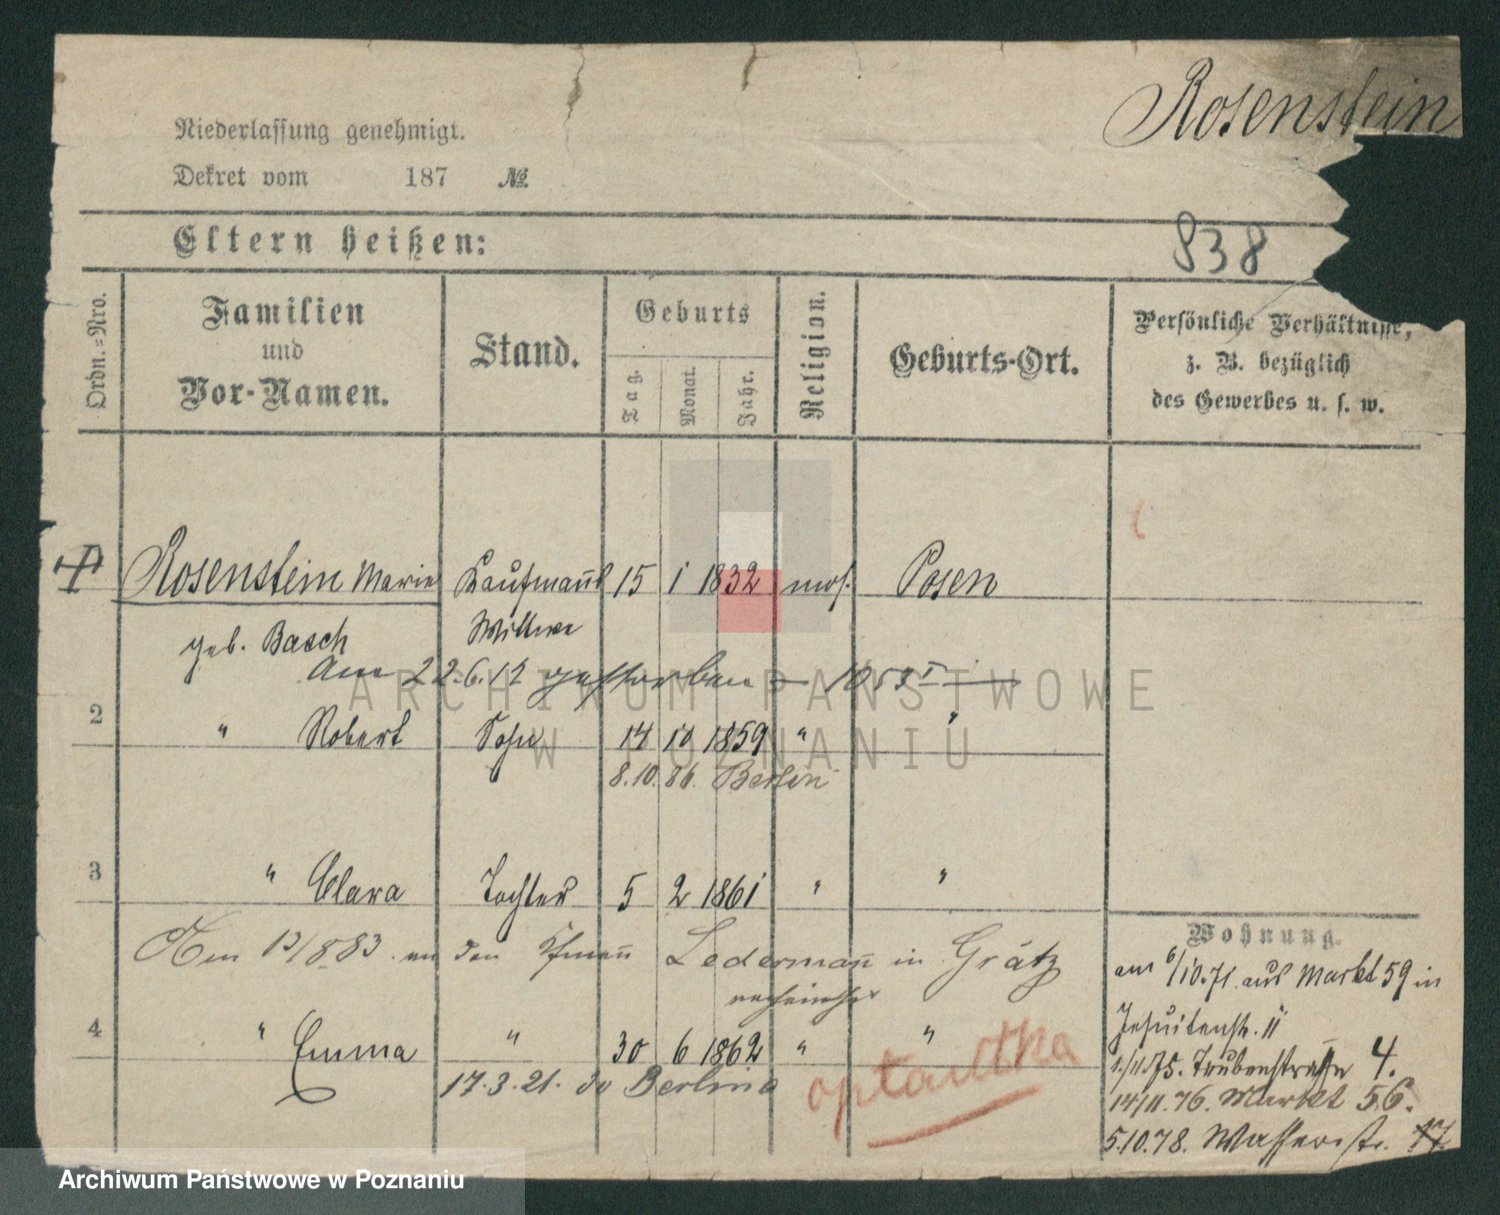 Rosenstein
Niederlassung genehmigt.
Dekret vom 187 №
Eltern heißen:
838
Ordn.=Nro.
Familien
und
Vor-Namen.
Stand.
Geburts
Tag.
Monat.
Jahr.
Religion.
Geburts-Ort.
Persönliche Verhältnisse,
z. B. bezüglich
des Gewerbes u. s. w.
Rosenstein Marie Kaufmanns 15 1 1832 mos. Posen
geb. Basch Wittwe
Am 22.6.12 gestorben - 1053
2 " Robert Sohn 14 10 1859 " "
8.10.86. Berlin
3 " Clara Tochter 5 2 1861 " "
Am 13/8 83. an den Kfmañ Ledermañ in Grätz
4 " Emma " 30 6 1862 " "
17.3.21. do Berlina
optantka
Wohnung.
am 6/10.71. aus Markt 59 in
Jesuitenstr. 11
1/11 75. Taubenstraße 4.
14/11.76. Markt 56.
5.10.78. Wasserstr. 17.
ARCHIWUM PAŃSTWOWE
W POZNANIU
Archiwum Państwowe w Poznaniu